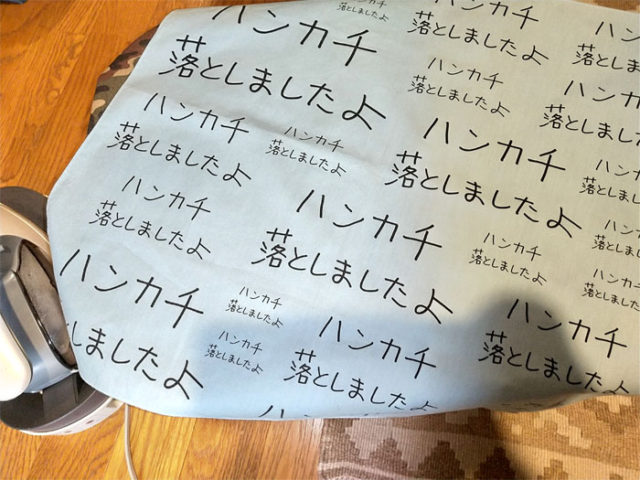 ハンカチ
落としましたよ
ハンカチ
落としましたよ
ハンカチ
落としましたよ
ハンカ
落としま
ハンカチ
落としましたよ
ハンカ
落としました
ハンカチ
落としましたよ
ハンカチ
落としましたよ
ハンカチ
落としましたよ
ハンカ
落としま
ハンカチ
落としましたよ
ハンカチ
落としましたよ
ハンカチ
落としましたよ
ハンカ
落としま
ハンカ
落としま
ハンカチ
しましたよ
ハンカチ
落としましたよ
ハンカチ
落としましたよ
ハンカチ
落としましたよ
ハンカチ
落としました